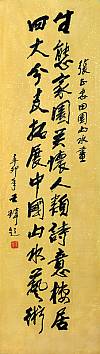 復正安田園山水畫
生態家園关懷人類詩意棲居
四大分支拓展中國山水藝術
辛卯年